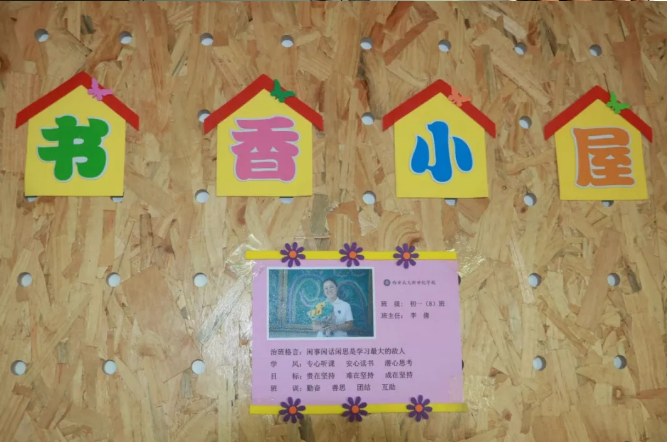 书香小屋
班 级：初一（8）班
班主任：李
治班格言：闲事闲话闲思是学习最大的敌人
学 风：专心听课 安心读书 潜心思考
目 标：贵在坚持 难在坚持 成在坚持
班 训：勤奋 善思 团结 互助